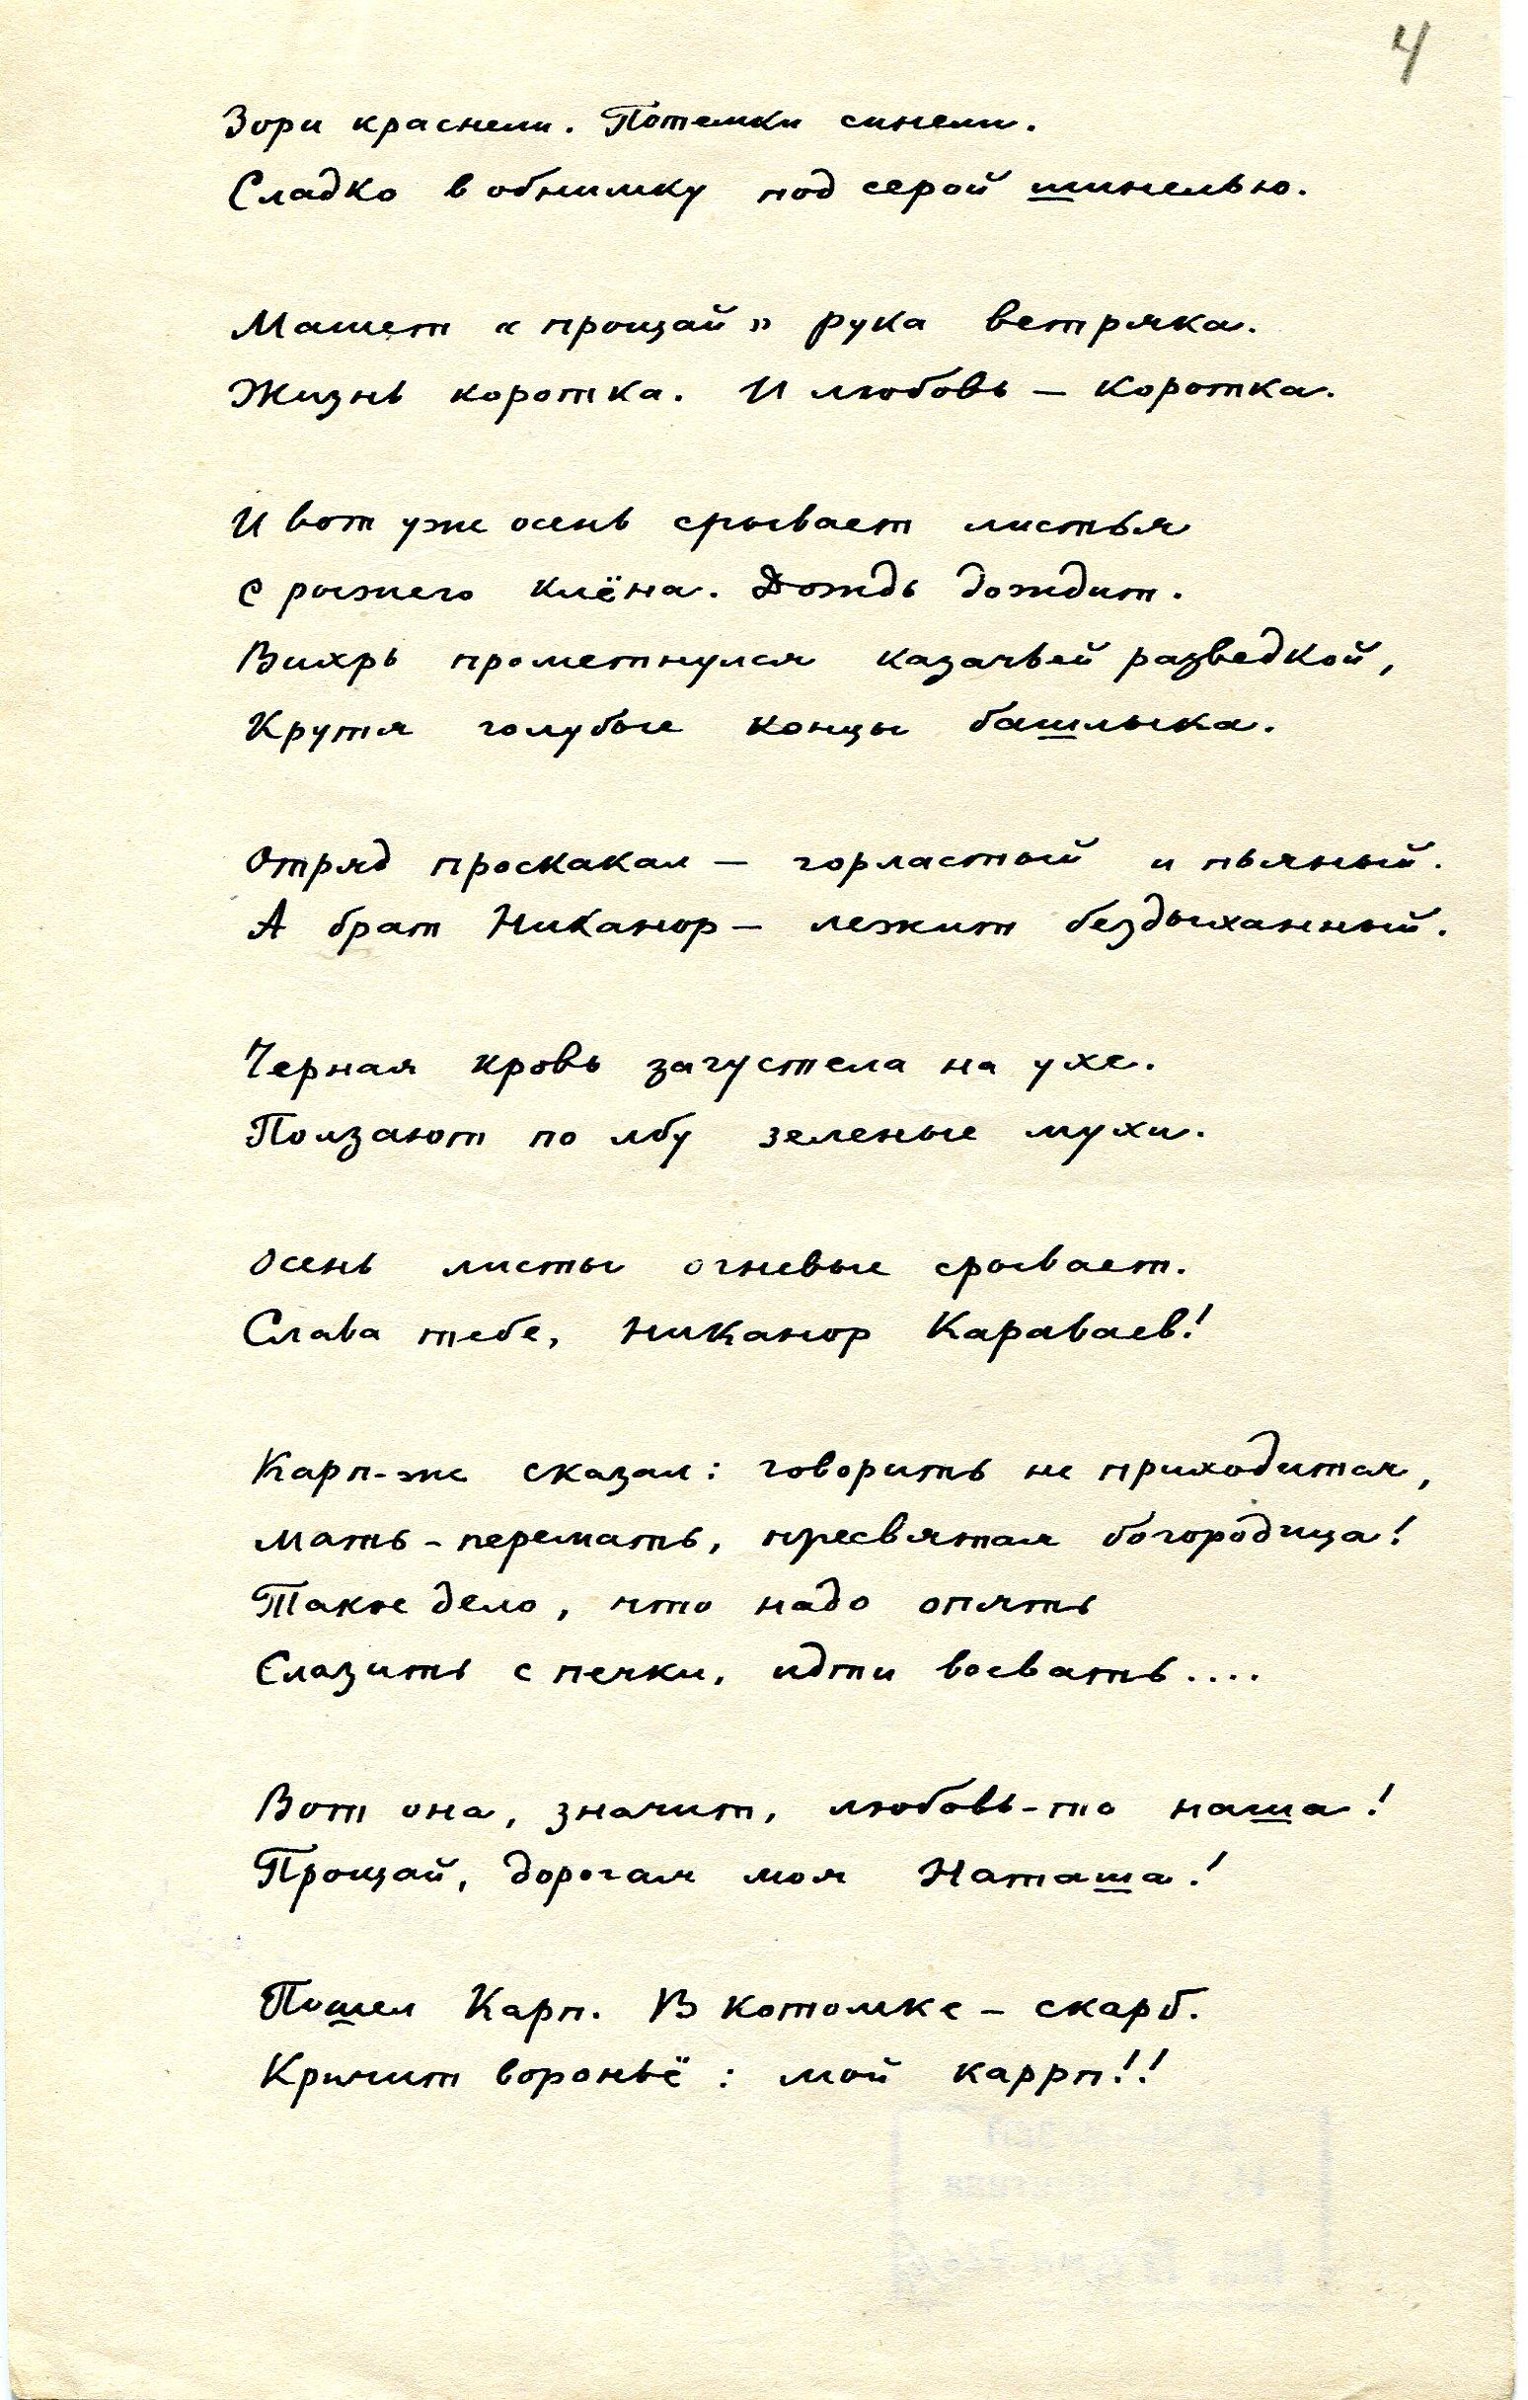 4
Зори краснели. Потемки синели.
Сладко в обнимку под серой шинелью.
Машет «прощай» рука ветряка.
Жизнь коротка. И любовь — коротка.
И вот уже осень срывает листья
с рыжего клёна. Дождь дождит.
Вихрь прометнулся казачьей разведкой,
Крутя голубые концы башлыка.
Отряд проскакал — горластый и пьяный.
А брат Никанор — лежит бездыханный.
Черная кровь загустела на ухе.
Ползают по лбу зеленые мухи.
Осень листы огневые срывает.
Слава тебе, Никанор Караваев!
Карп-же сказал: говорить не приходится,
Мать-перемать, пресвятая богородица!
Такое дело, что надо опять
Слазить с печки, идти воевать....
Вот она, значит, любовь-то наша!
Прощай, дорогая моя Наташа!
Пошел Карп. В котомке — скарб.
Кричит вороньё: мой каррп!!